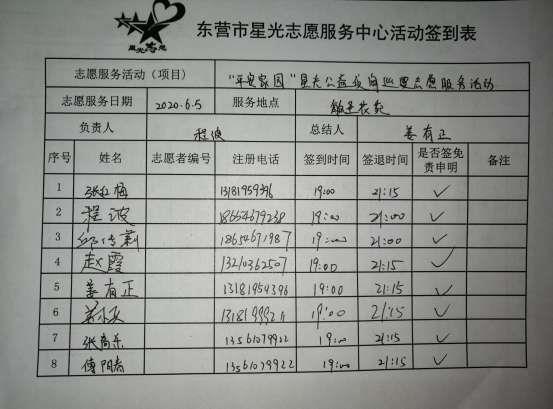 星光志愿
东营市星光志愿服务中心活动签到表
志愿服务活动（项目） "平安家园"星光公益夜间巡逻志愿服务活动
志愿服务日期 2020.6.5 服务地点
负责人 程波 总结人 姜有正
序号 姓名 志愿者编号 注册电话 签到时间 签退时间 是否签免责申明 备注
1 张红梅 19:00 21:15 ✓
2 程波 18654679238 19:00 21:00 ✓
3 18654671987 19:00 21:00 ✓
4 赵霞 13210362507 19:00 21:15 ✓
5 姜有正 13181954396 19:00 21:15 ✓
6 19:00 21:15 ✓
7 张尚东 13561079922 19:00 21:15 ✓
8 傅阳春 13561079922 19:00 21:15 ✓